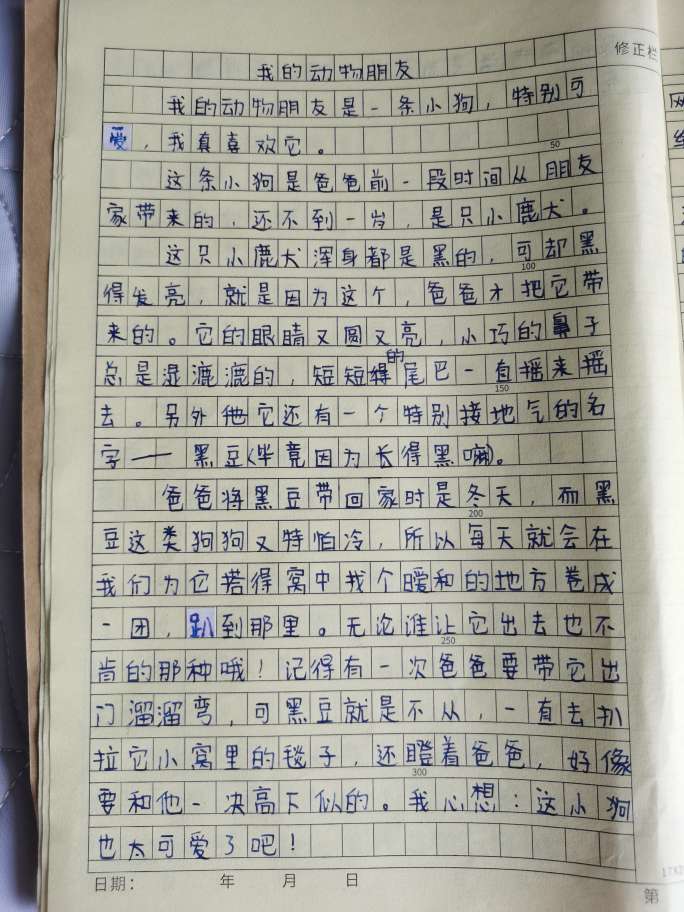 修正栏
我的动物朋友
我的动物朋友是一条小狗，特别可
爱，我真喜欢它。
50
这条小狗是爸爸前一段时间从朋友
家带来的，还不到一岁，是只小鹿犬。
这只小鹿犬浑身都是黑的，可却黑
100
得发亮，就是因为这个，爸爸才把它带
来的。它的眼睛又圆又亮，小巧的鼻子
总是湿漉漉的，短短的尾巴一直摇来摇
150
去。另外它还有一个特别接地气的名
字——黑豆(毕竟因为长得黑嘛)。
爸爸将黑豆带回家时是冬天，而黑
200
豆这类狗狗又特怕冷，所以每天就会在
我们为它搭得窝中找个暖和的地方卷成
一团，趴到那里。无论谁让它出去也不
250
肯的那种哦！记得有一次爸爸要带它出
门溜溜弯，可黑豆就是不从，一直去扒
拉它小窝里的毯子，还瞪着爸爸，好像
300
要和他一决高下似的。我心想：这小狗
也太可爱了吧！
日期： 年 月 日
第